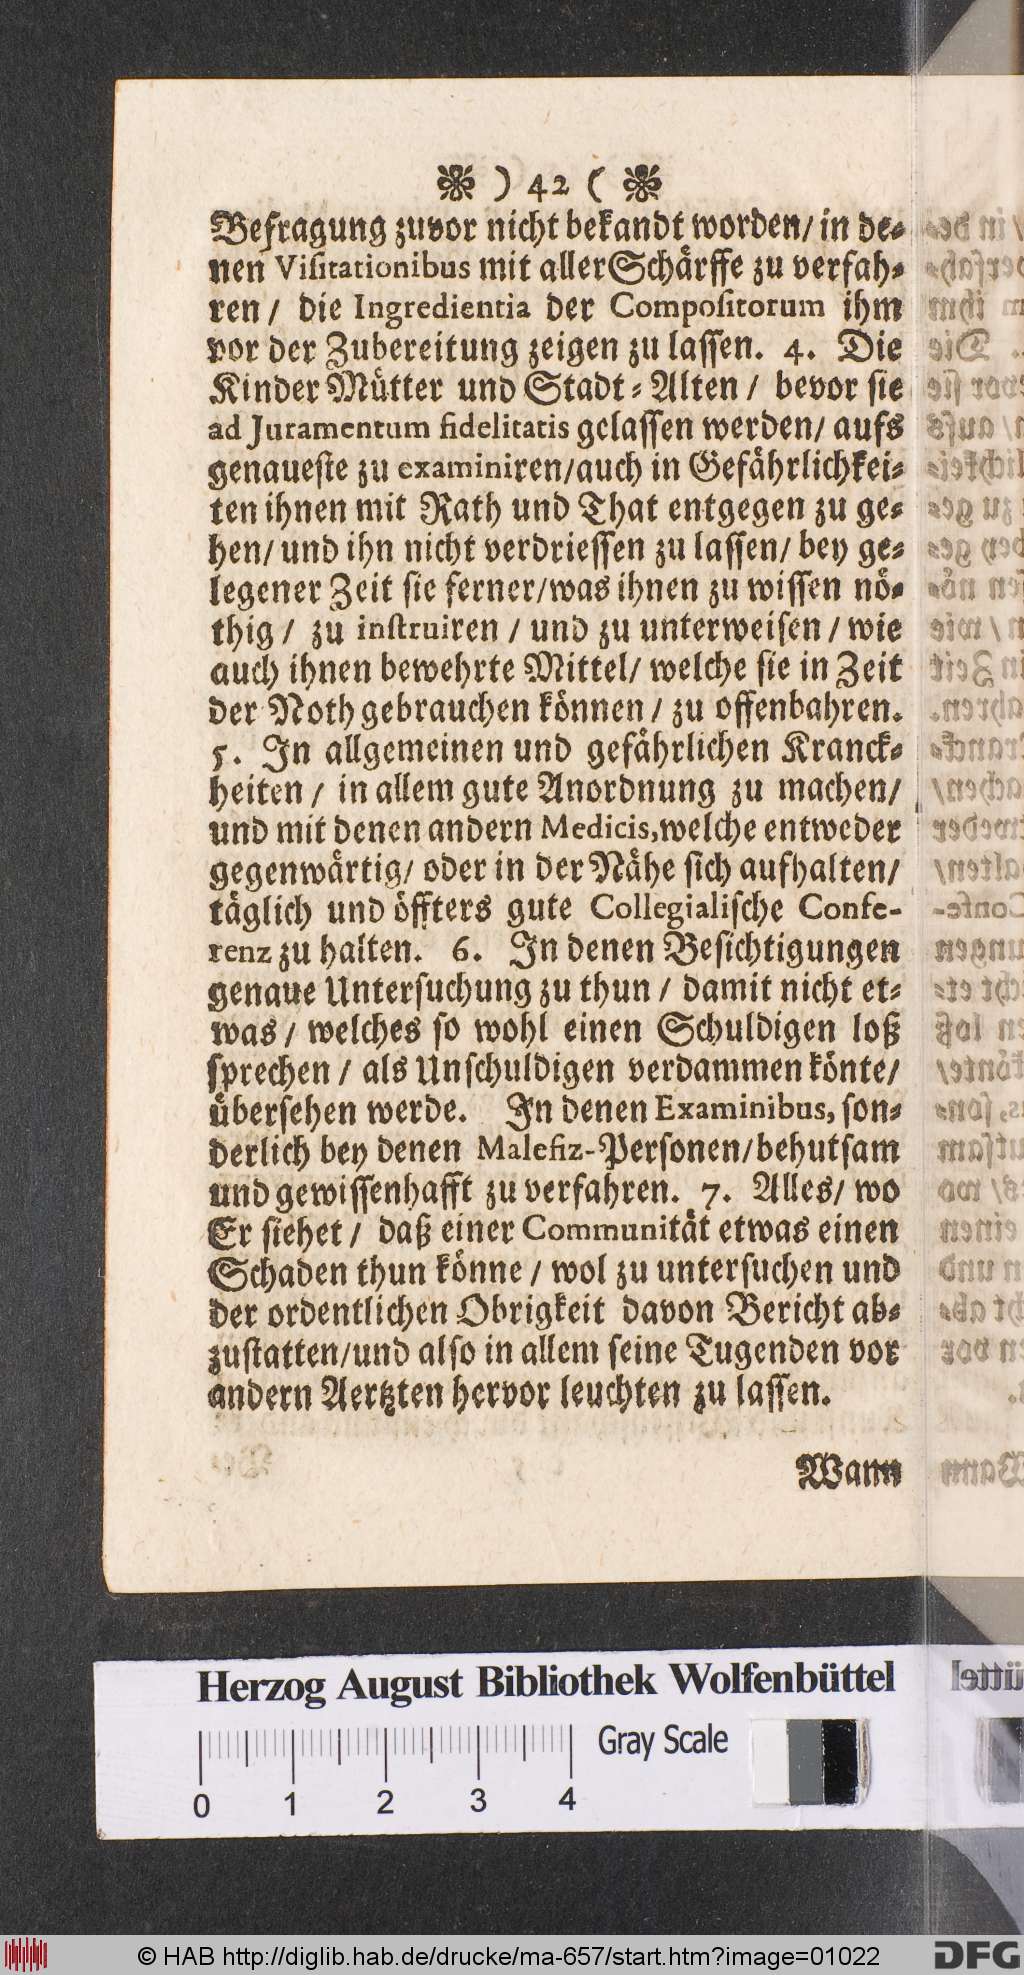 ❀ ) 42 ( ❀
Befragung zuvor nicht bekandt worden/ in de-
nen Visitationibus mit aller Schärffe zu verfah-
ren / die Ingredientia der Compositorum ihm
vor der Zubereitung zeigen zu lassen. 4. Die
Kinder Mütter und Stadt-Alten / bevor sie
ad Juramentum fidelitatis gelassen werden/ aufs
genaueste zu examiniren/auch in Gefährlichkei-
ten ihnen mit Rath und That entgegen zu ge-
hen/ und ihn nicht verdriessen zu lassen/ bey ge-
legener Zeit sie ferner/was ihnen zu wissen nö-
thig / zu instruiren / und zu unterweisen / wie
auch ihnen bewehrte Mittel/ welche sie in Zeit
der Noth gebrauchen können / zu offenbahren.
5. In allgemeinen und gefährlichen Kranck-
heiten / in allem gute Anordnung zu machen/
und mit denen andern Medicis,welche entweder
gegenwärtig/ oder in der Nähe sich aufhalten/
täglich und öffters gute Collegialische Confe-
renz zu halten. 6. In denen Besichtigungen
genaue Untersuchung zu thun / damit nicht et-
was / welches so wohl einen Schuldigen loß
sprechen / als Unschuldigen verdammen könte/
übersehen werde. In denen Examinibus, son-
derlich bey denen Malefiz-Personen/behutsam
und gewissenhafft zu verfahren. 7. Alles/ wo
Er siehet / daß einer Communität etwas einen
Schaden thun könne / wol zu untersuchen und
der ordentlichen Obrigkeit davon Bericht ab-
zustatten/und also in allem seine Tugenden vor
andern Aertzten hervor leuchten zu lassen.
Wann
Herzog August Bibliothek Wolfenbüttel
Gray Scale
0 1 2 3 4
© HAB http://diglib.hab.de/drucke/ma-657/start.htm?image=01022
DFG